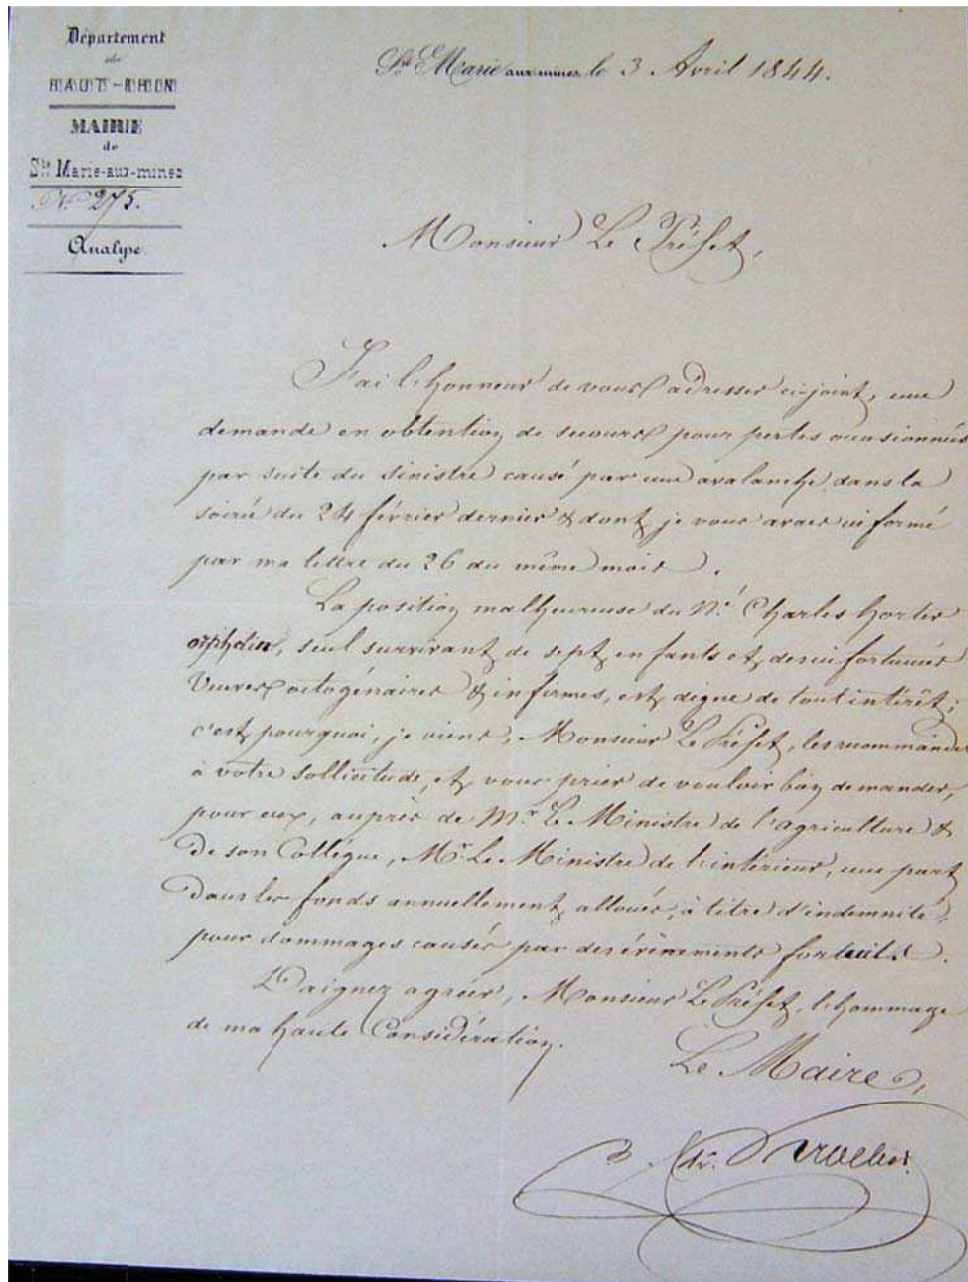 Département
de
HAUT-RHIN
MAIRIE
de
Ste Marie-aux-mines
No 275.
Analyse
Ste Marie aux mines le 3 Avril 1844.
Monsieur Le Préfet,
J'ai l'honneur de vous adresser ci-joint, une
demande en obtention de secours pour pertes occasionnées
par suite du sinistre causé par une avalanche dans la
soirée du 24 février dernier & dont je vous avais informé
par ma lettre du 26 du même mois.
La position malheureuse du Né Charles
orphelin, seul survivant de sept enfants et des infortunées
Veuves octogénaires & infirmes, est digne de tout intérêt;
c'est pourquoi, je viens, Monsieur Le Préfet, les recommander
à votre sollicitude, et vous prier de vouloir bien demander,
pour eux, auprès de Mr Le Ministre de l'agriculture &
De son Collègue, Mr Le Ministre de l'intérieur, une part
Dans les fonds annuellement alloués, à titre d'indemnité,
pour dommages causés par des évènements fortuits.
Daignez agréer, Monsieur Le Préfet, l'hommage
de ma haute Considération.
Le Maire,